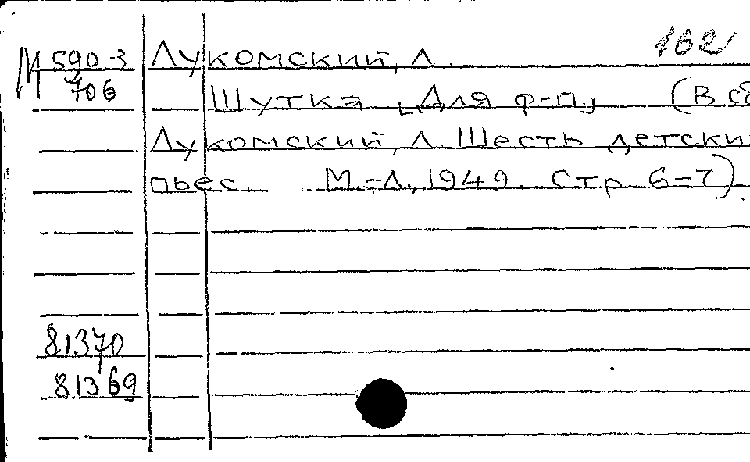 162
М 590-3 Лукомский, Л.
706 Шутка [Для ф-п] (В сб
Лукомский, Л Шесть детски
пьес М.-Л, 1949. Стр 6-7).
81370
81369